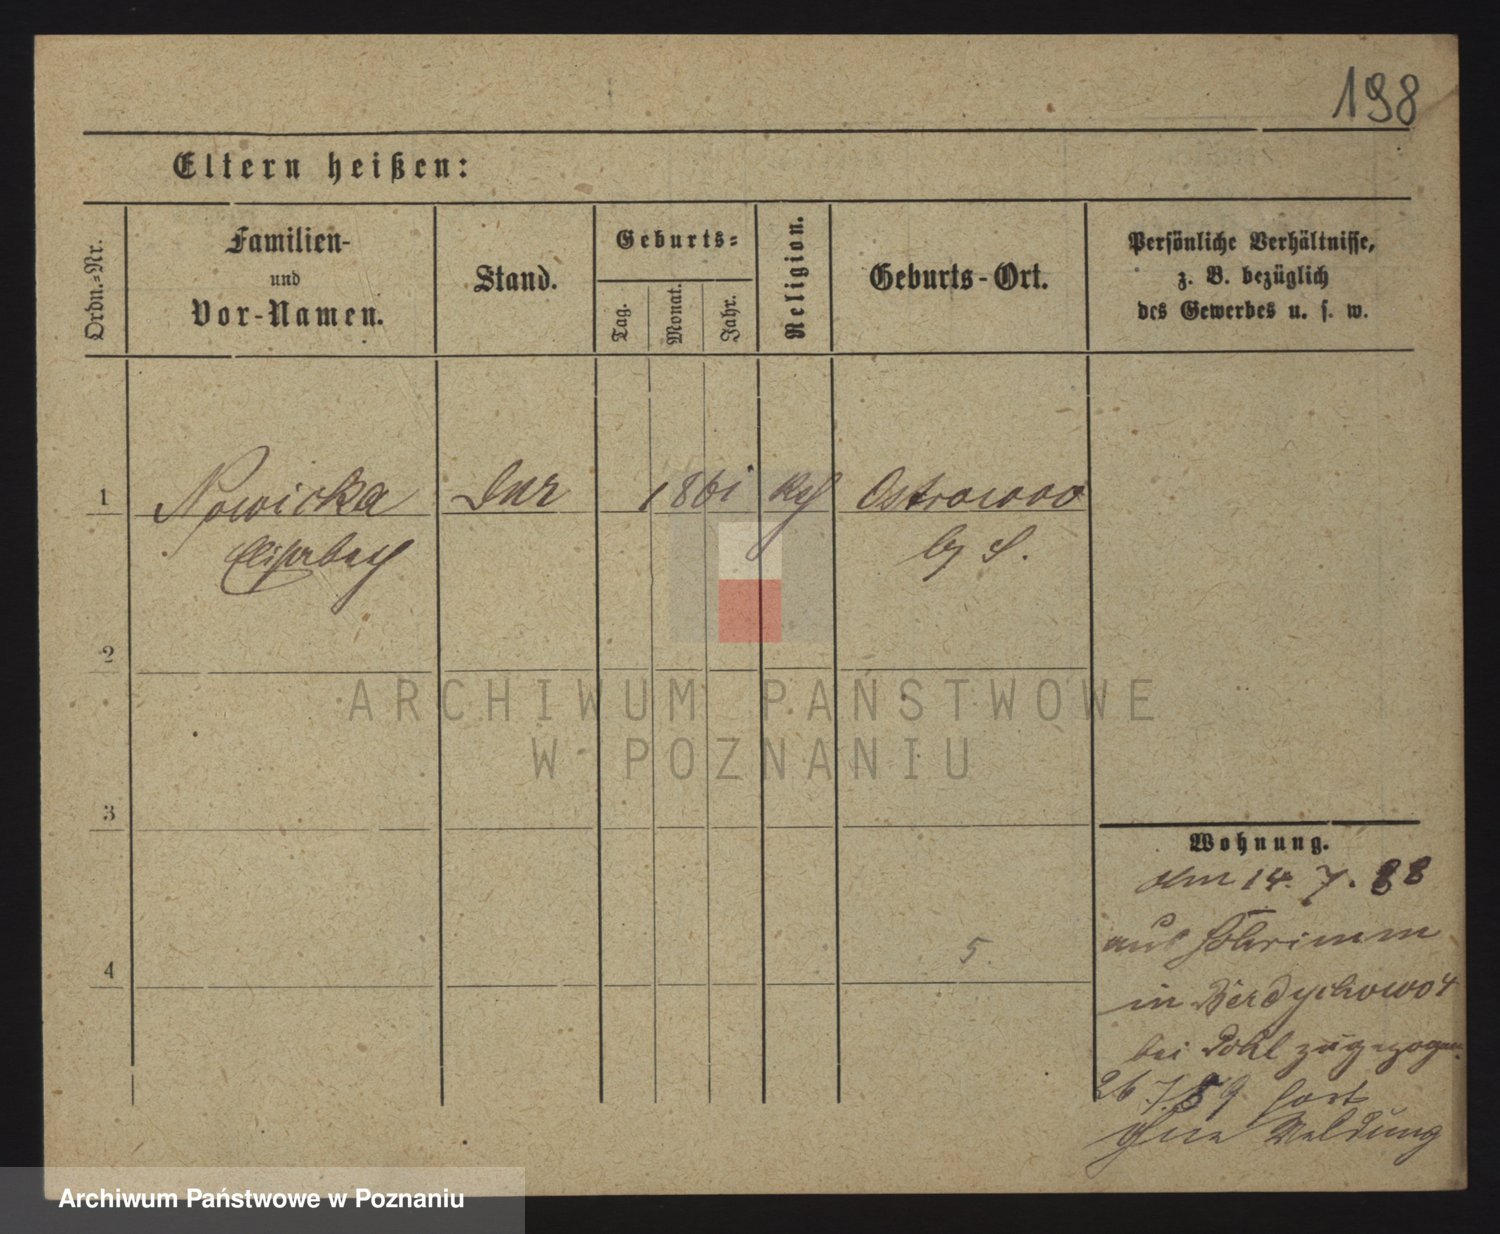 198
Eltern heißen:
Ordn.-Nr.
Familien-
und
Vor-Namen.
Stand.
Geburts-
Tag.
Monat.
Jahr.
Religion.
Geburts-Ort.
Persönliche Verhältnisse,
z. B. bezüglich
des Gewerbes u. s. w.
1
Nowicka
1861
Kth
Ostrowoo
Elisabeth
by S.
2
ARCHIWUM PAŃSTWOWE
W POZNANIU
3
Wohnung.
am 14. 7. 88
aus
5.
4
in Berdychowo 4
bei Pohl zugezogen
26 7. 89 fort
ohne Meldung
Archiwum Państwowe w Poznaniu